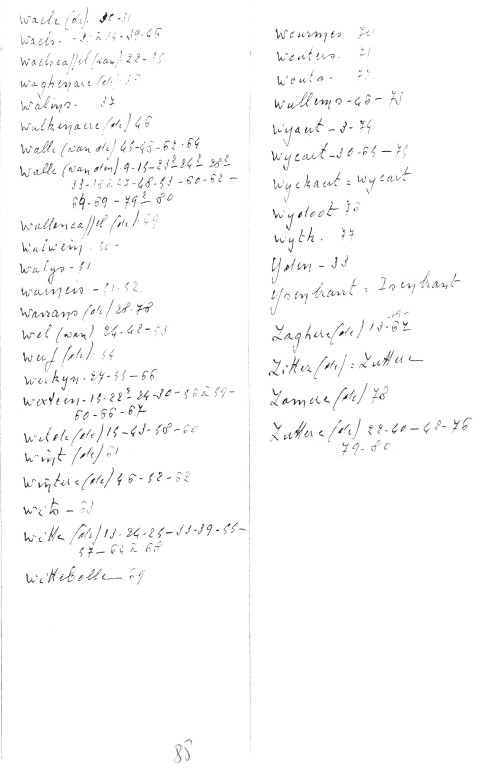 Waele (de). 30-31
Waels. -31 à 34-39-45
Waelscappel (van) 22-35
Waghenare (de). 36
Walins. 37
Walkenaere (de) 46
Walle (van de) 45-48-62-64
Walle (van den). 9-15-23²-24²-28²
33-38 à 47-48-53-60-62-
64-69-79²-80
Wallencappel (de). 49
Walwein. 50-
Walys-51
Warneis-51-52.
Warrans (de) 28.78
Wel (van) 24-42-53
Werf (de). 54
Werkyn-24-55-66
Westeen-15-22²-24-30-56 à 59-
60-66-67
Wilde (de) 15-43-58-60
Wint (de) 61
Wintere (de) 46-52-62
Wits-63
Witte (de) 13-24-25-33-39-55-
57-64 à 68
Wittebolle-69
Wourmes 70
Wouters. 71
Wouts. 72
Wullems-46-73
Wyart-3-74
Wycart-30-64-75
Wyckaert = Wycart
Wydoot 76
Wyth. 77
Yden-33
Ysenbrant = Isenbrant
Zaghere (de) 13-15-67
Zitter (de) = Zuttere
Zomere (de) 78
Zuttere (de) 22-40-42-76
79-80.
85